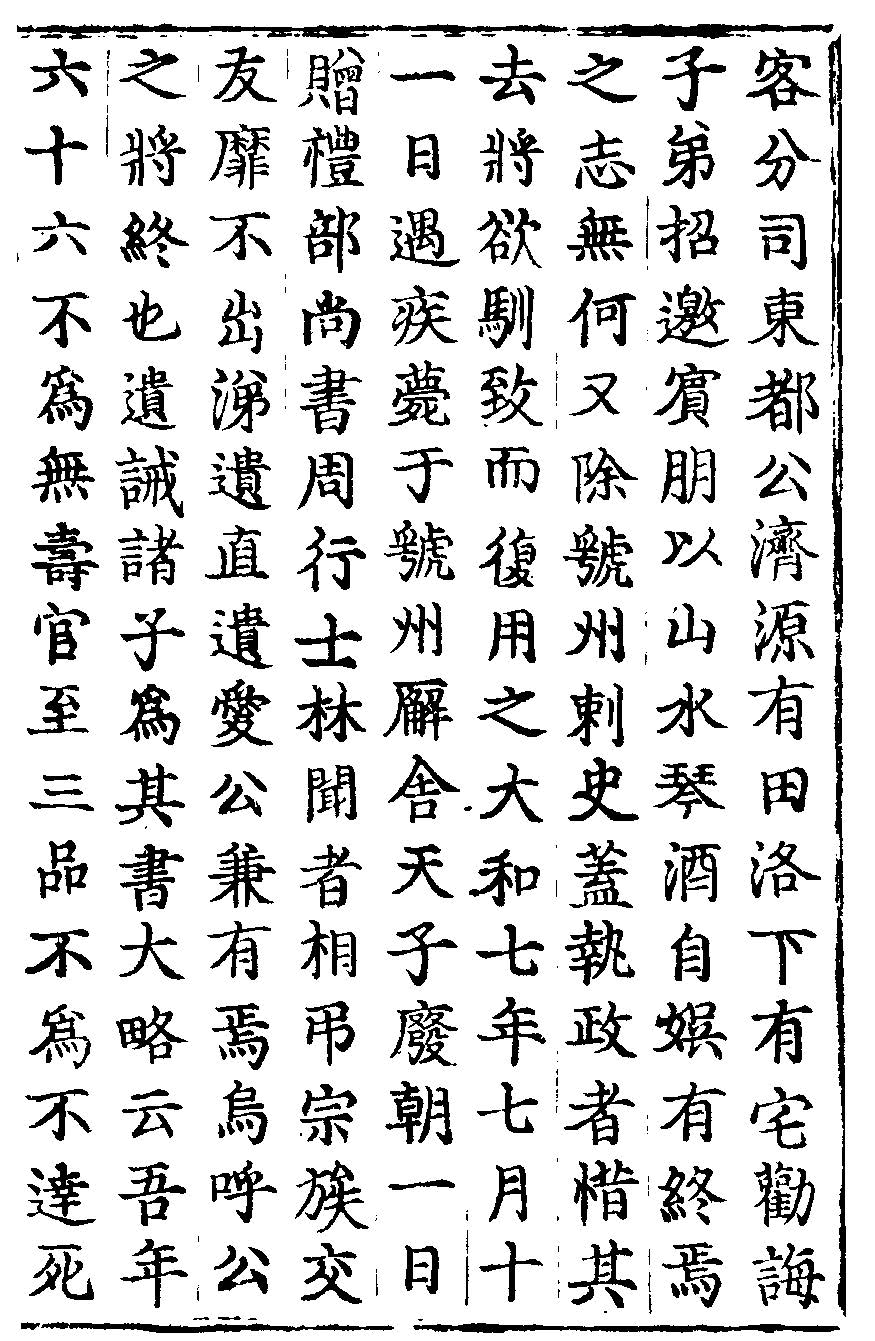 客分司東都公濟源有田洛下有宅勸誨
子弟招邀賓朋以山水琴酒自娯有終焉
之志無何又除虢州刺史蓋執政者惜其
去將欲馴致而復用之大和七年七月十
一日遇疾薨于虢州廨舎天子廢朝一日
贈禮部尚書周行士林聞者相弔宗族交
友靡不出涕遺直遺愛公兼有焉烏呼公
之將終也遺誡諸子爲其書大略云吾年
六十六不爲無壽官至三品不爲不達死